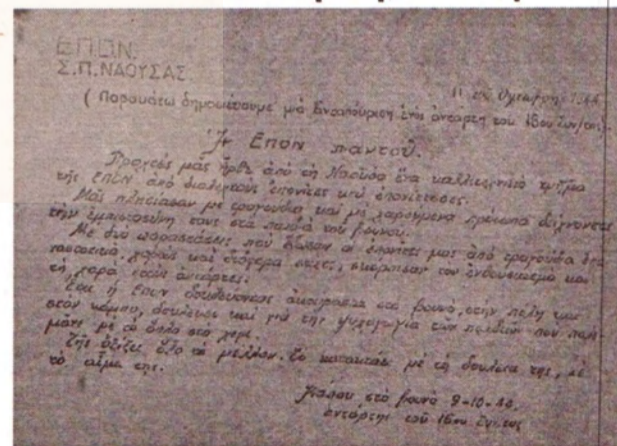 ΕΠΟΝ.
Σ.Π.ΝΑΟΥΣΑΣ
11 της Οχτώβρη 1944
(Παρακάτω δημοσιεύουμε μιά ἐνός ἀντάρτη του 16ου Συν/τος)
Ἡ ΕΠΟΝ παντοῦ.
Προχτές μᾶς ἦρθε ἀπό τή Ναούσα ἕνα καλλιτεχνικό τμῆμα
τῆς ΕΠΟΝ ἀπό διαλεχτούς ἐπονίτες καί ἐπονίτισσες.
Μᾶς πλησίασαν με τραγούδια καί με χαρούμενα πρόσωπα δείχνοντας
τήν ἐμπιστοσύνη τους στά παιδιά του βουνοῦ.
Με δυό παραστάσεις πού ἔδωσαν οἱ ἐπονίτες μας ἀπό τραγούδια
χορούς καί σκόρπισαν τον ἐνθουσιασμό και
τή χαρά στούς ἀντάρτες.
Ἔτσι ἡ ΕΠΟΝ ἀκούραστα στό βουνό, στήν πόλη και
στόν κάμπο, δουλεύει καί γιά τήν ψυχαγωγία τῶν παιδιῶν πού
με τό ὅπλο στό χέρι.
Τῆς ἀξίζει ὅλο τό μέλλον. Τό καταχτάει με τή δουλειά της, με
τό αἷμα της.
Κάπου στό βουνό 9-10-44
ἀντάρτης τοῦ 16ου Συν/τος